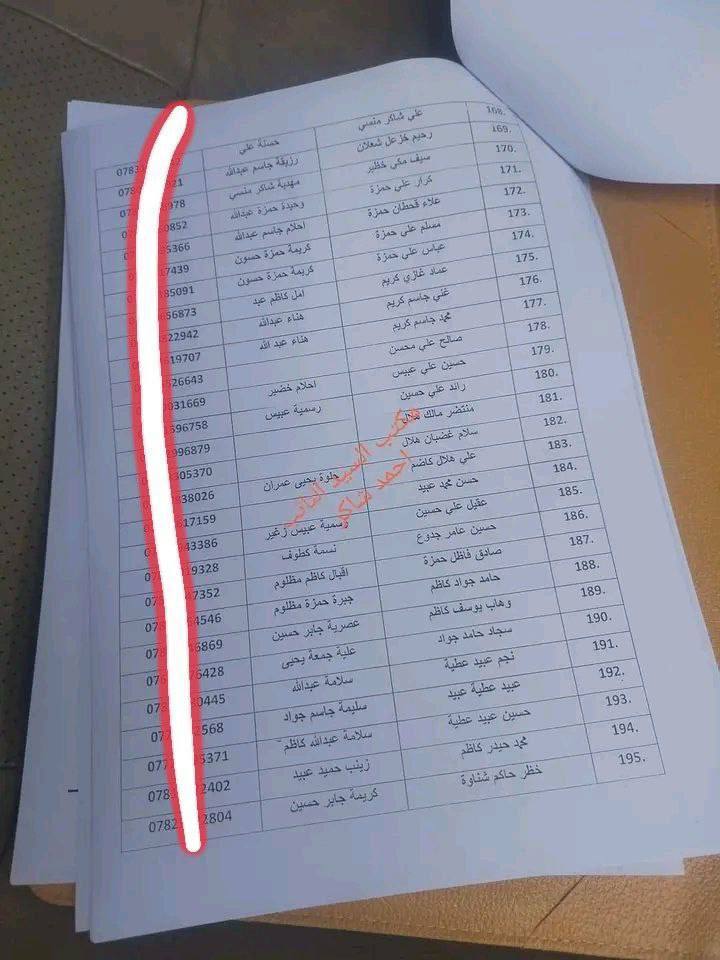 168. علي شاكر منسي حسنة علي
169. رحيم خزعل شعلان رزيقة جاسم عبدالله 21
170. سيف مكي خظير مهدية شاكر منسي 978
171. كرار علي حمزة وحيدة حمزة عبدالله 0852
172. علاء قحطان حمزة احلام جاسم عبدالله 5366
173. مسلم علي حمزة كريمة حمزة حسون 17439
174. عباس علي حمزة كريمة حمزة حسون 85091
175. عماد غازي كريم امل كاظم عبد 656873
176. غني جاسم كريم هناء عبدالله 822942
177. محمد جاسم كريم هناء عبد الله 619707
178. صالح علي محسن 626643
179. حسين علي عبيس احلام خضير 031669
180. رائد علي حسين رسمية عبيس 596758
181. منتضر مالك هلال 996879
182. سلام غضبان هلال 305370
183. علي هلال كاضم حلوة يحيى عمران 838026
184. حسن محمد عبيد 617159
185. عقيل علي حسين رسمية عبيس زغير 43386
186. حسين عامر جدوع نسمة كطوف 19328
187. صادق فاظل حمزة اقبال كاظم مظلوم 7352
188. حامد جواد كاظم جبرة حمزة مظلوم 4546
189. وهاب يوسف كاظم عصرية جابر حسين 6869
190. سجاد حامد جواد علية جمعة يحيى 6428
191. نجم عبيد عطية سلامة عبدالله 0445
192. عبيد عطية عبيد سليمة جاسم جواد 2568
193. حسين عبيد عطية سلامة عبدالله كاظم 5371
194. محمد حيدر كاظم زينب حميد عبيد 2402
195. خظر حاكم شناوة كريمة جابر حسين 2804
مكتب السيد النائب
احمد شاكر